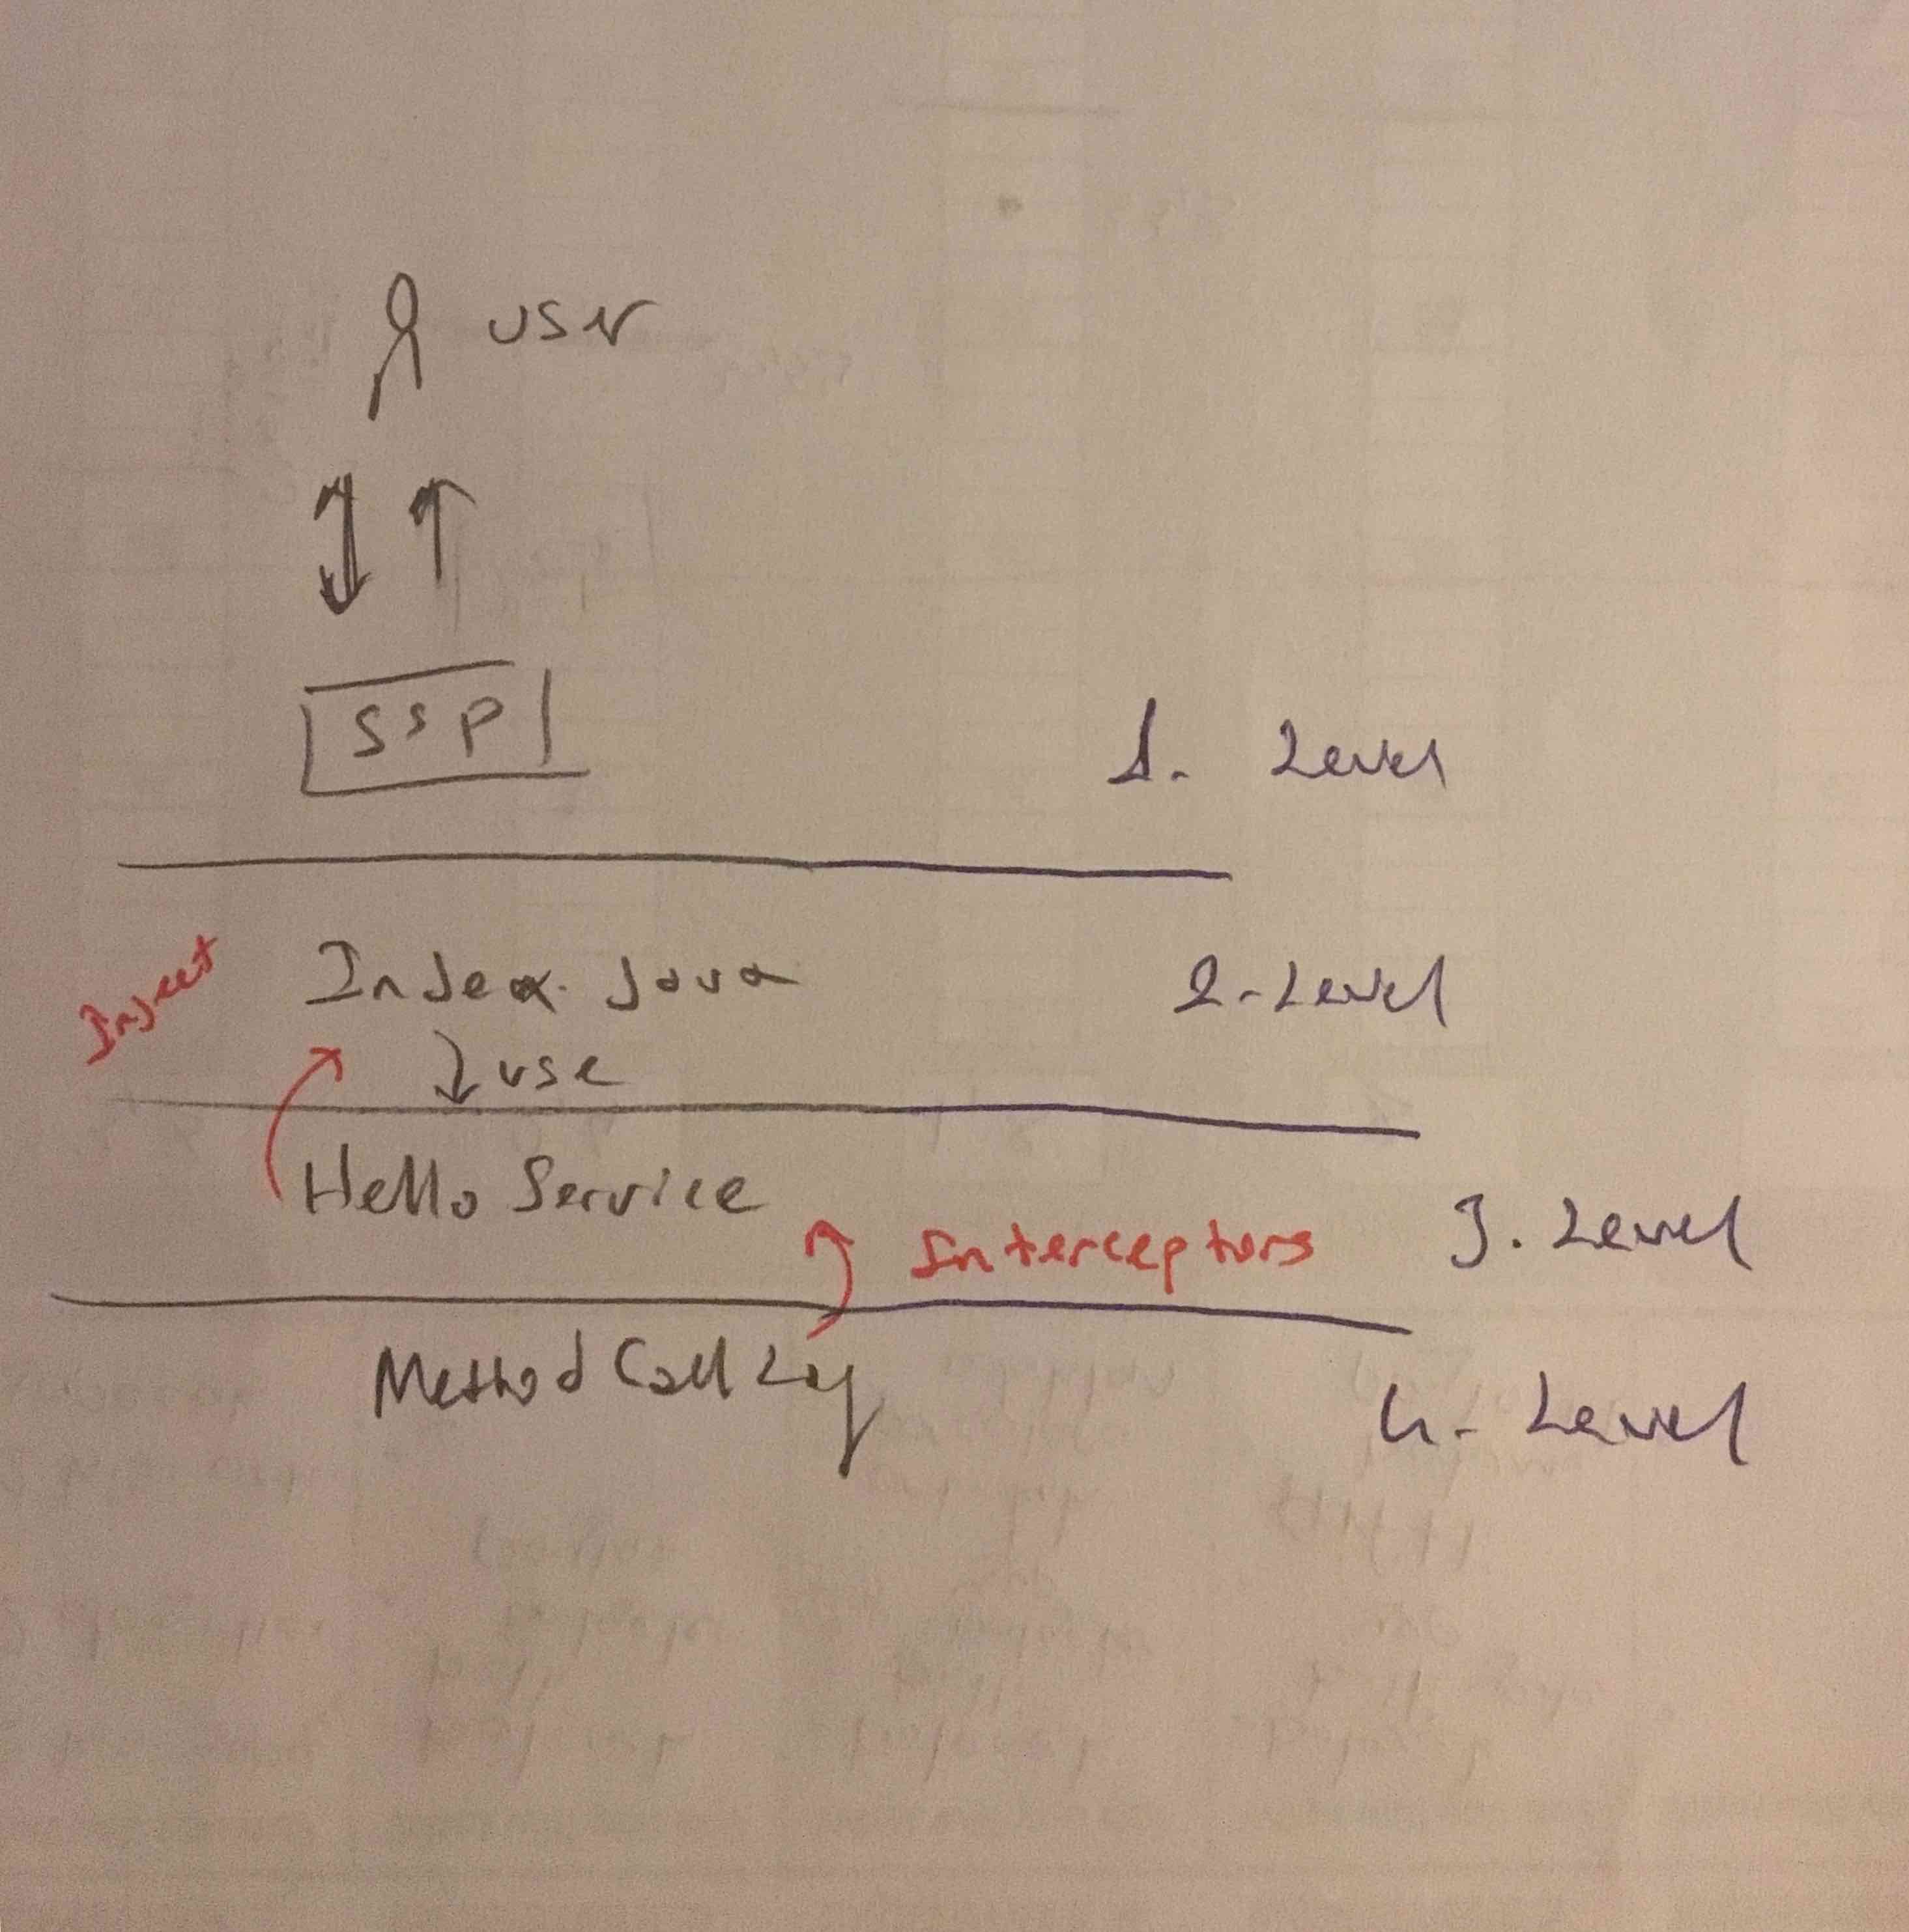 user
SSP
1. Level
Inject
Index.Java
2-Level
use
Hello Service
Interceptors
3. Level
Method Call Log
4- Level